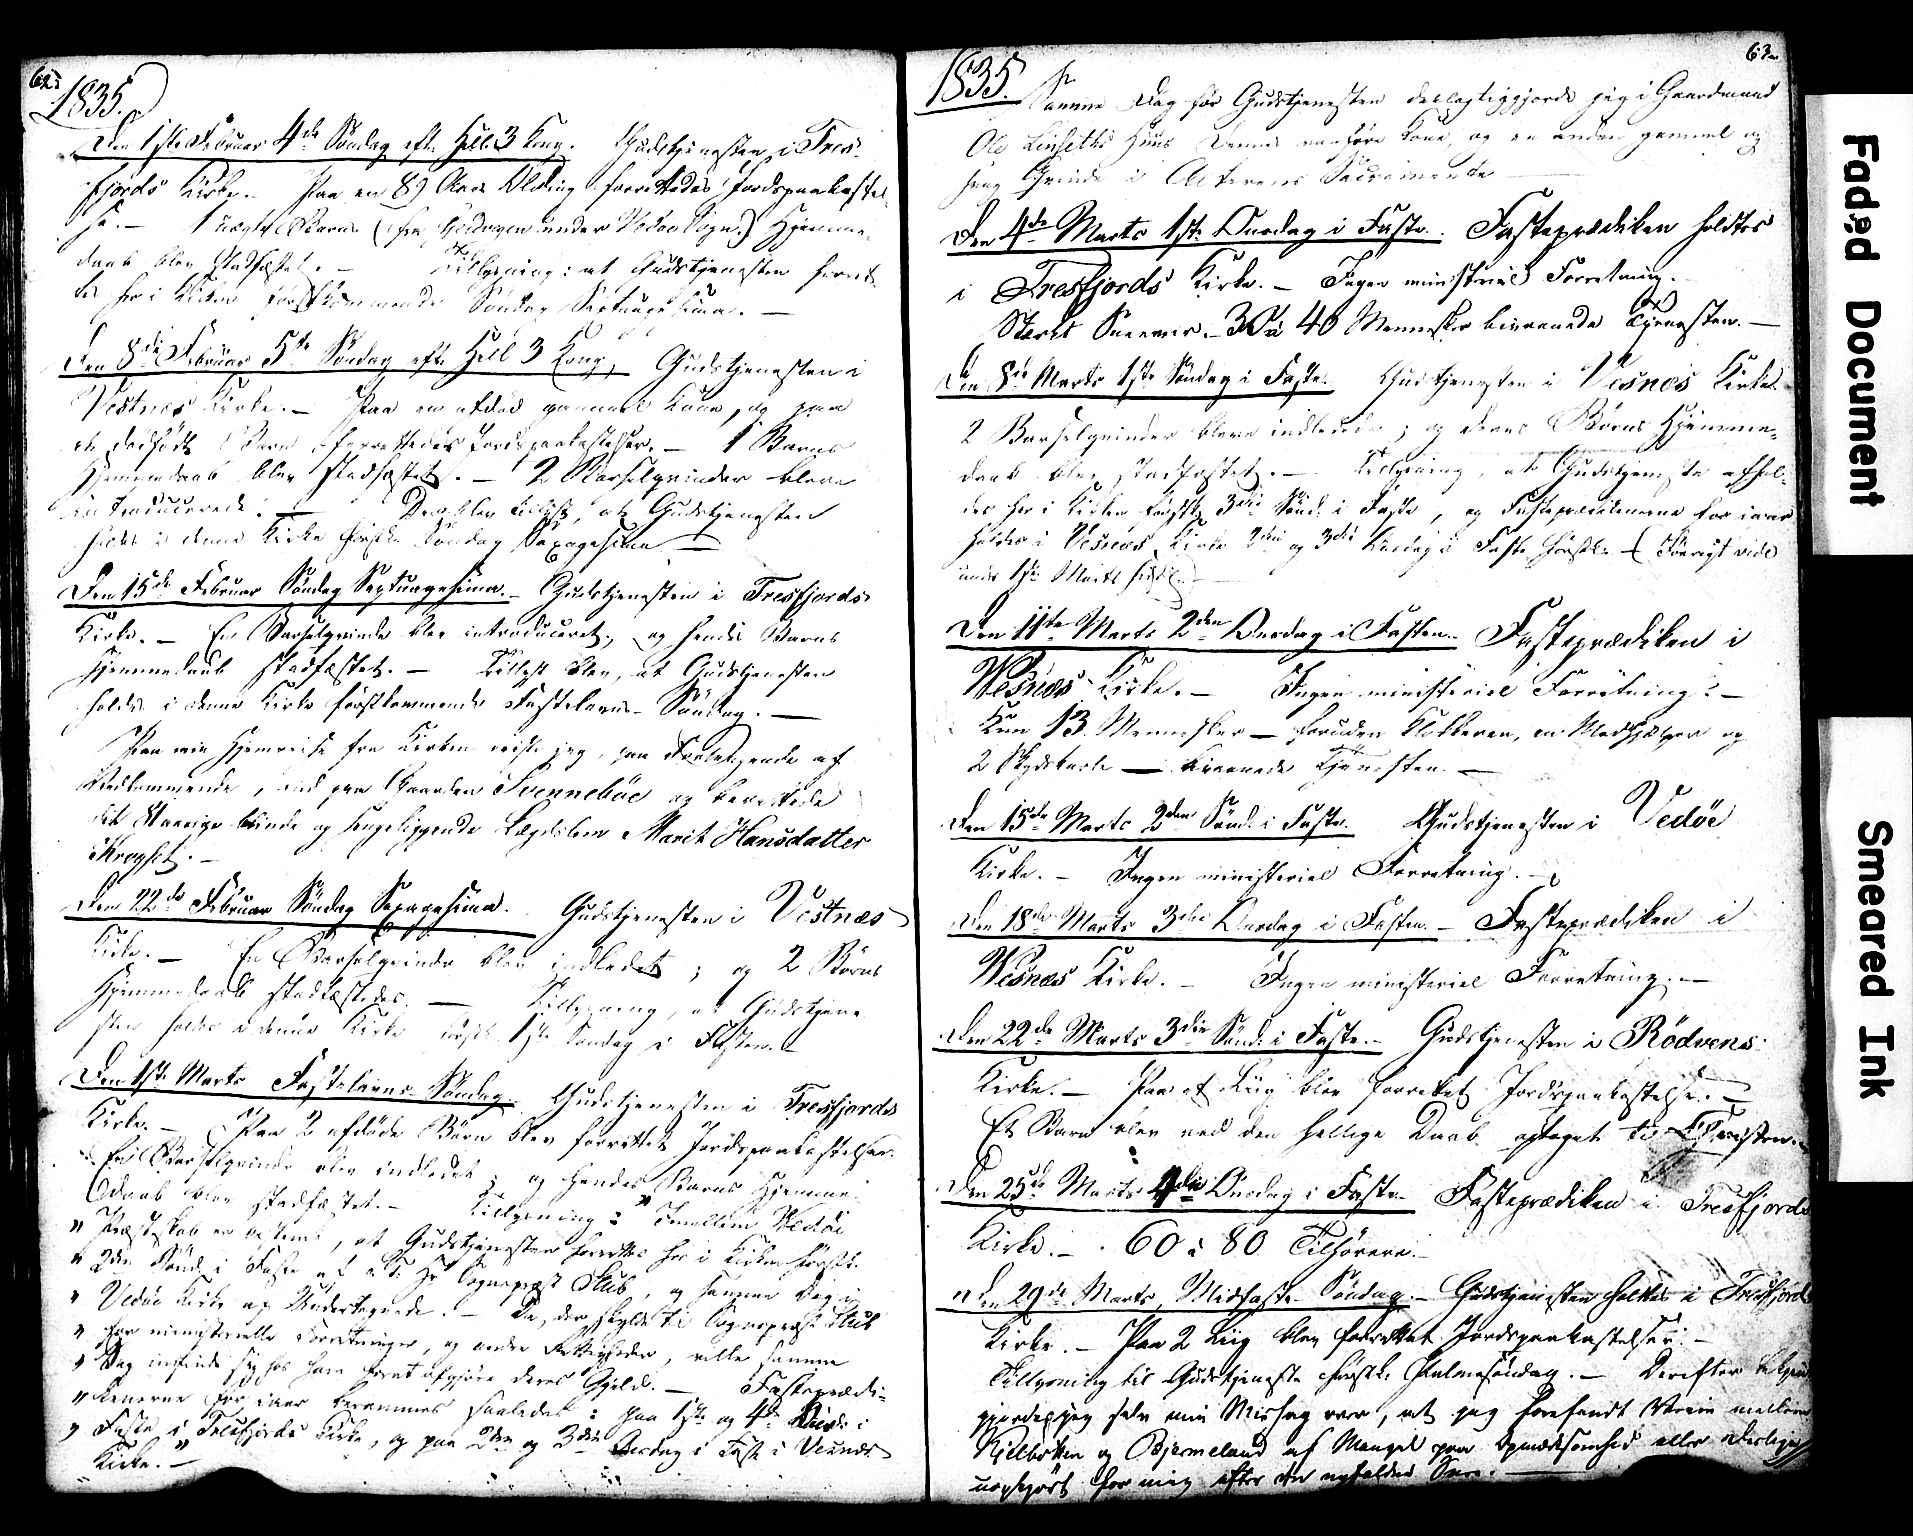 62.
1835.
Den 1ste Februar 4de Söndag eft. Hell. 3 Kong. Gudstjenesten i Tres-
fjords Kirke. - Paa en 89 Aars Olding forrettedes Jordspaakastel-
se. - 1 uægte Barns (fra under Vedöe Sogn.) Hjemme-
daab blev stadfæstet. - Tillysning: at Gudstjenesten forret-
tes her i Kirken förstkommende Söndag Septuagesima. -
Den 8de Februar 5te Söndag eft. Hell 3 Kong. Gudstjenesten i
Vestnæs Kirke. - Paa en afdöd gammel Kone, og paa
et dödfödt Barn forrettedes Jordspaakastelser. - 1 Barns
Hjemmedaab blev stadfæstet. - 2 Barselqvinder bleve
introducerede. - Der blev tillyst, at Gudstjenesten
holdes i denne Kirke förstk. Söndag Sexagesima -
Den 15de Februar Söndag Septuagesima. - Gudstjenesten i Tresfjords
Kirke. - En Barselqvinde blev introduceret, og hendes Barns
Hjemmedaab stadfæstet. - Tillyst blev, at Gudstjenesten
holdes i denne Kirke förstkommende Fastelavns-Söndag. -
Paa min Hjemreise fra Kirken reiste jeg, paa Forlangende af
Vedkommende, ind paa Gaarden Svenneböe og berettede
det blinde og sengeliggende Lægdslem Marit Hansdatter
Krogset. -
Den 22de Februar Söndag Sexagesima. Gudstjenesten i Vestnæs
Kirke. - En Barselqvinde blev indledet; og 2 Börns
Hjemmedaab stadfæstedes. - Tillysning, at Gudstjene-
sten holdes i denne Kirke förstk. 1ste Söndag i Fasten. -
Den 1ste Marts Fastelavns-Söndag. Gudstjenesten i Tresfjords
Kirke. - Paa 2 afdöde Börn blev forrettet Jordspaakastelser.
En Barselqvinde blev indledet; og hendes Barns Hjemme-
daab blev stadfæstet. - Tillysning: " Imellem Vedöe
" Præsteskab er bestemt, at Gudstjenesten forrettes her i Kirken förstk.
" 2den Sönd. i Faste af Hr Sognepræst Stub, og samme Dag i
" Vedöe Kirke af Undertegnede. - De, der skylde til Sognepræst Stub
" for ministerielle Forretninger, og andre Rettigheder, ville samme
" Dag infinde sig hos ham for at afgjöre deres Gjeld. - Fasteprædi-
" kenerne for iaar berammes saaledes: paa 1ste og 4de Onsd. i
" Faste i Tresfjords Kirke, og paa 2den og 3die Onsdag i Faste i Vesnæs
Kirke. " -
63.
1835.
Samme Dag för Gudstjenesten delagtiggjorde jeg i Gaardmand
Ole Linsets Huus Dennes Kone, og en anden gammel og
svag Qvinde i Alterens Sacramente
Den 4de Marts 1ste Onsdag i Faste. Fasteprædiken holdtes
i Tresfjords Kirke. - Ingen ministriel Forretning. -
Stærkt Sneeveir. - 30 à 40 Mennesker bivaanede Tjenesten. -
Den 8de Marts 1ste Söndag i Faste. Gudstjenesten i Vesnæs Kirke.
2 Barselqvinder bleve indledede; og deres Börns Hjemme-
daab blev stadfæstet. - Tillysning, at Gudstjeneste afhol-
des her i Kirken förstk. 3die Sönd. i Faste, og Fasteprædikenerne for iaar
holdes i Vesnæs Kirke 2den og 3die Onsdag i Faste förstk. - (Forövrigt vide
under 1ste Marts
Den 11te Marts 2den Onsdag i Fasten. - Fasteprædiken i
Wesnæs Kirke. - Ingen ministeriel Forretning. -
Kun 13 Mennesker - foruden Klokkeren, en Medhjælper og
2 Skydskarle - bivaanede Tjenesten. -
Den 15de Marts 2den Sönd. i Faste. Gudstjenesten i Vedöe
Kirke. - Ingen ministeriel Forretning. -
Den 18de Marts 3die Onsdag i Fasten. - Fasteprædiken i
Wesnæs Kirke. - Ingen ministeriel Forretning. -
Den 22de Marts 3die Sönd. i Faste. - Gudstjenesten i Rödvens
Kirke. - Paa et Liig blev forrettet Jordspaakastelse. -
Et Barn blev ved den hellige Daab optaget til Christen.
Den 25de Marts 4de Onsdag i Faste. - Fasteprædiken i Tresfjords
Kirke. - 60 à 80 Tilhörere. -
Den 29de Marts, Midfaste-Söndag. - Gudstjenesten holdtes i Tresfjords
Kirke. - Paa 2 Liig blev forrettet Jordspaakastelser. -
Tillysning til Gudstjeneste förstk. Palmesöndag. - Derefter
gjorde jeg selv min Mishag over, at jeg forefandt Veien mellem
Kjelbotten og Bjermeland af Mangel paa Opmærksomhed eller
uopkjört for mig efter den nyfaldne Snee. -
Faded Document
Smeared Ink